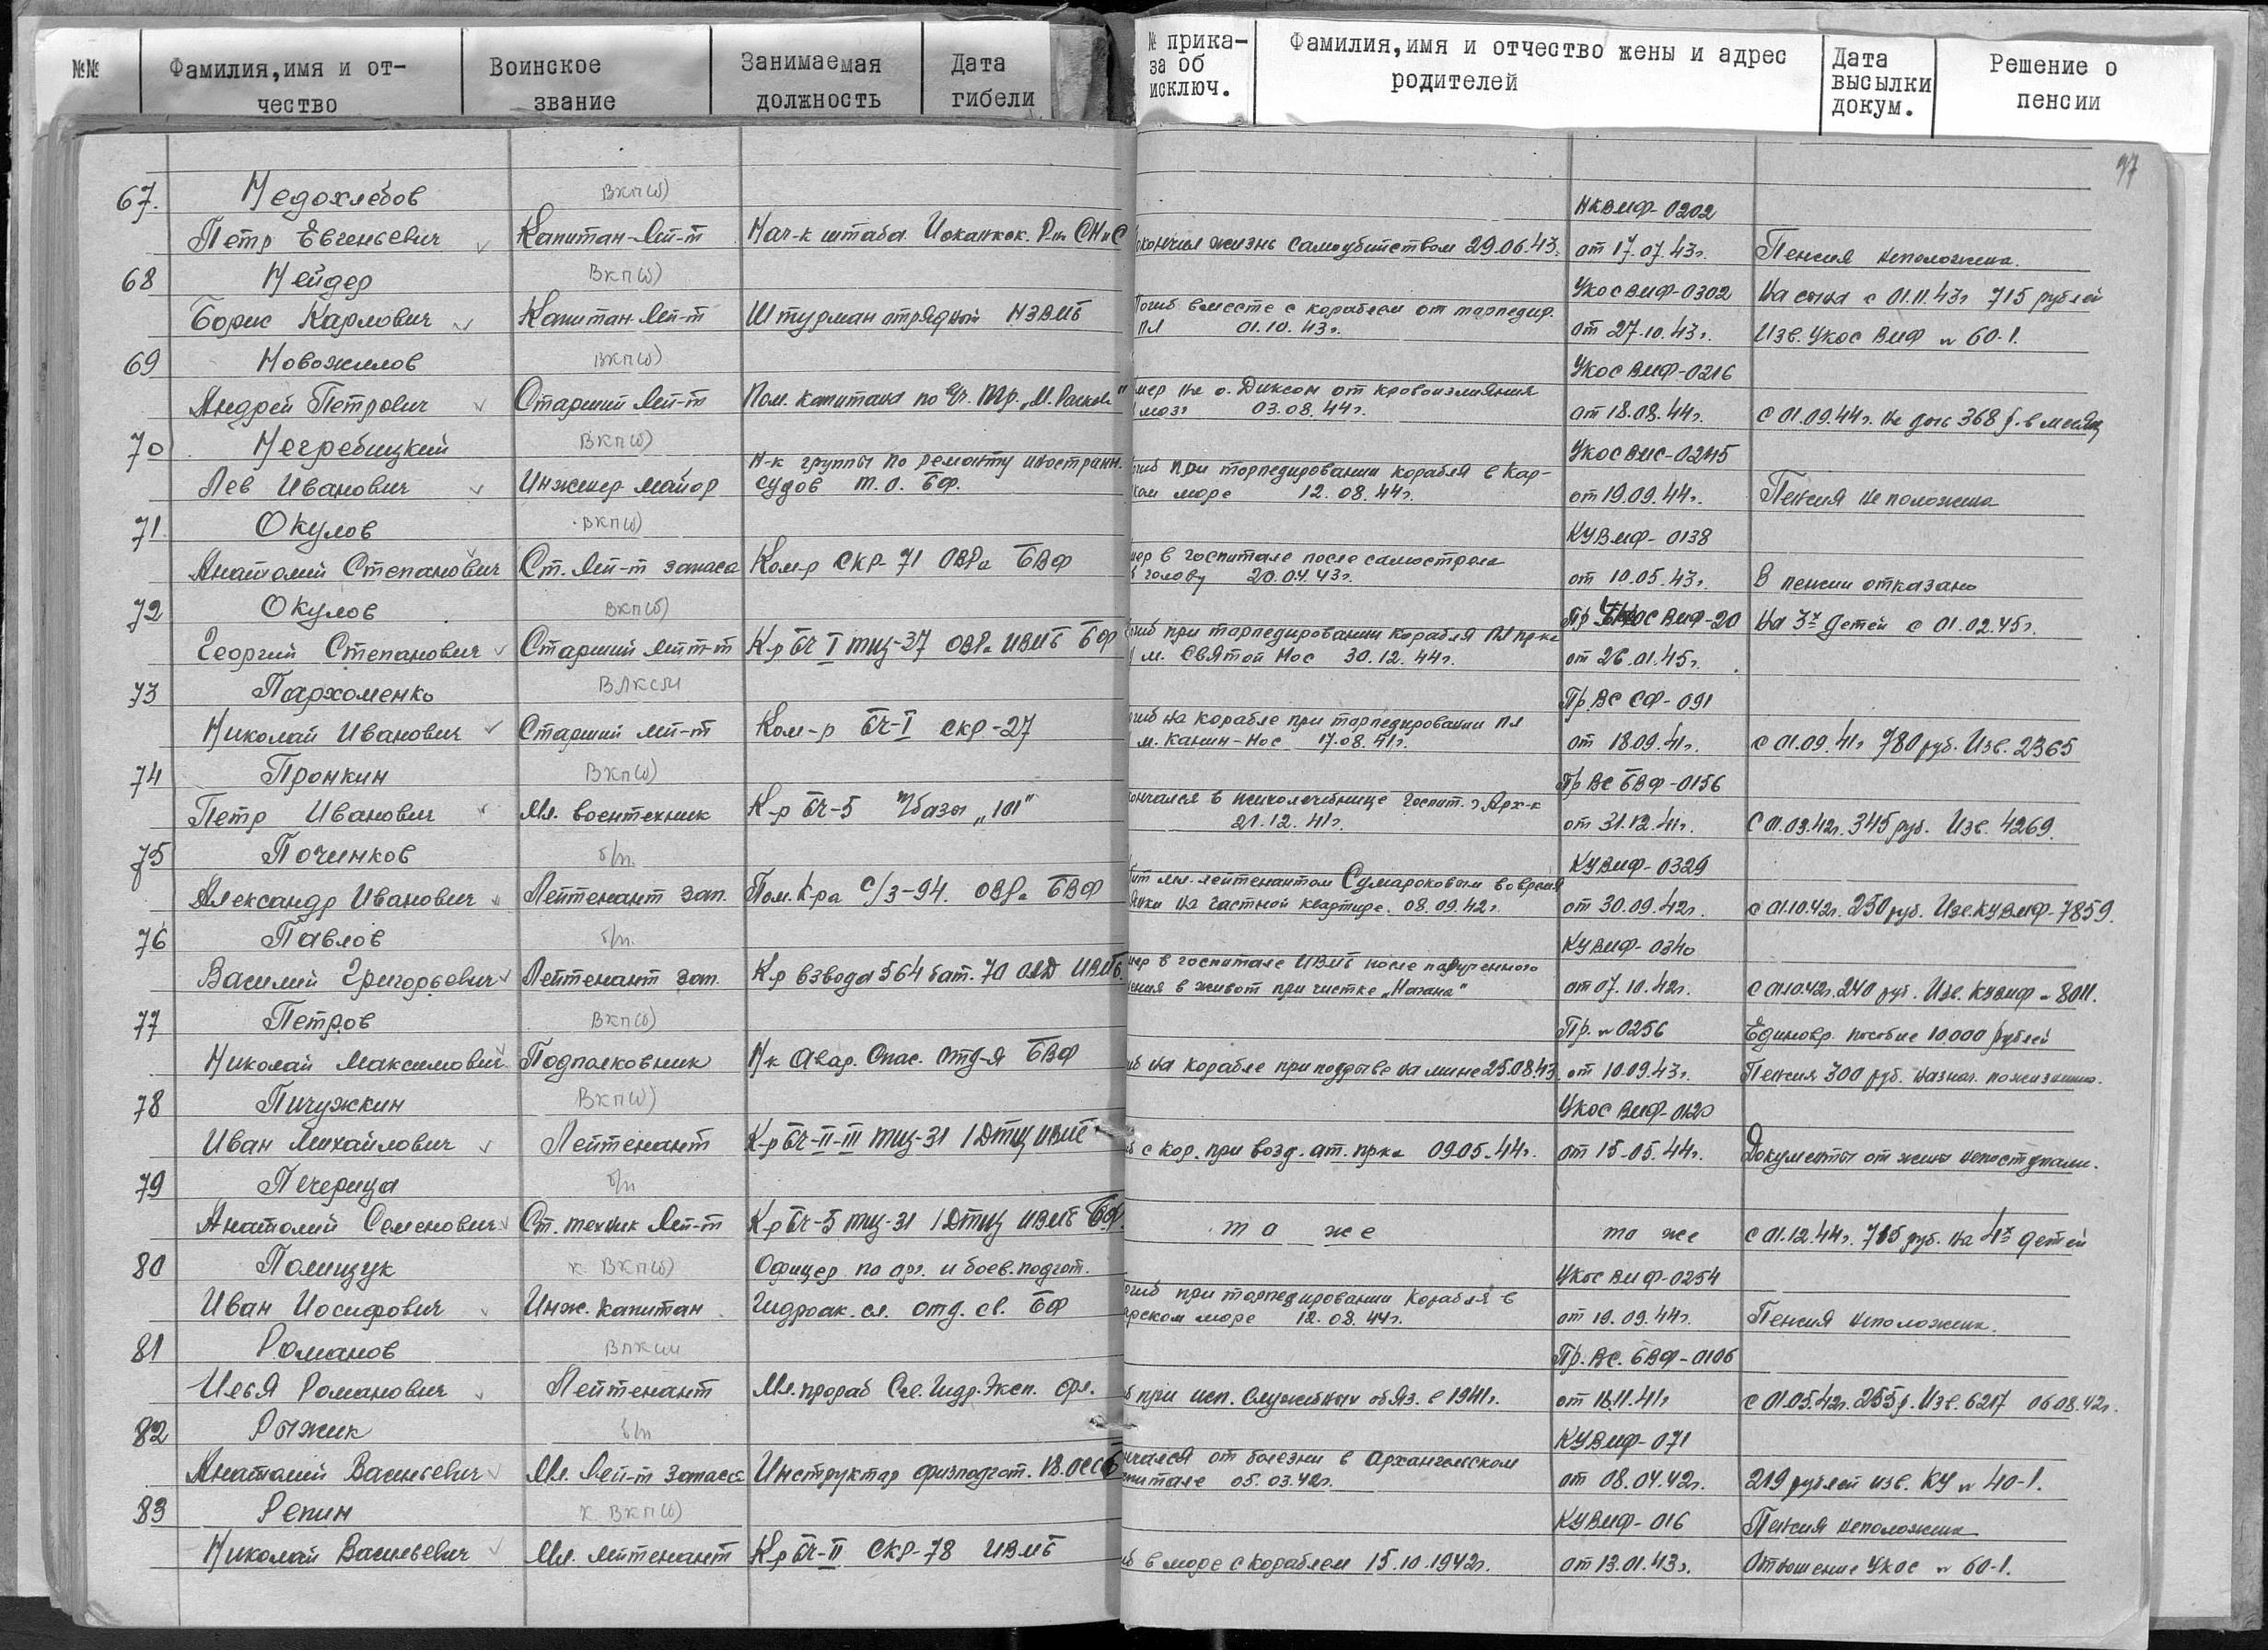 №№ Фамилия,имя и от- Воинское Занимаемая Дата № прика- Фамилия,имя и отчество жены и адрес Дата Решение о
чество звание должность гибели за об родителей высылки пенсии
исключ. докум.
97
67. Недохлебов ВКП(б) НКВМФ-0202
Петр Евгеньевич Капитан-Лей-т Нач-к штаба Иоканкск. Р-на СНиС окончил жизнь самоубийством 29.06.43. от 17.07.43г. Пенсия неположена.
68 Нейдер ВКП(б) УКОС ВМФ-0302 На сына с 01.11.43г 715 рублей
Борис Карлович Капитан Лей-т Штурман отрядной НЗВМБ Погиб вместе с кораблем от торпедир. от 27.10.43г. Изв. УКОС ВМФ № 60-1.
ПЛ 01.10.43г.
69 Новожилов ВКП(б) УКОС ВМФ-0216
Андрей Петрович Старший Лей-т Пом. капитана по Вч. Тр. „М. Раскова" мер на о. Диксон от кровоизлияния
мозг 03.08.44г. от 18.08.44г. с 01.09.44г. на дочь 368 р. в месяц
70 Негребицкий ВКП(б) УКОС ВМС-0245
Н-к группы по ремонту иностранн. гиб при торпедировании корабля в Кар-
Лев Иванович Инженер майор судов Т.О. БФ. ком море 12.08.44г. от 19.09.44г. Пенсия не положена
71. Окулов ВКП(б) КУВМФ-0138
Анатолий Степанович Ст. Лей-т запаса Ком-р СКР-71 ОВРа БВФ мер в госпитале после самострела
в голову 20.04.43г. от 10.05.43г. В пенсии отказано
72 Окулов ВКП(б) Пр УКОС ВМФ-20 На 3х детей с 01.02.45г.
Георгий Степанович Старший лейт-т К-р БЧ I ТЩ-37 ОВРа ИВМБ БФ гиб при торпедировании корабля ПЛ пр-ка
м. Святой Нос 30.12.44г. от 26.01.45г.
73 Пархоменко ВЛКСМ Пр. ВС СФ-091
Николай Иванович Старший лей-т Ком-р БЧ-I СКР-27 гиб на корабле при торпедировании ПЛ
м. Канин-Нос 17.08.41г. от 18.09.41г. с 01.09.41г 780 руб. Изв. 2365
74 Пронкин ВКП(б) Пр ВС БВФ-0156
Петр Иванович Мл. воентехник К-р БЧ-5 п/базы „101" ончался в психолечебнице госпит. г Арх-к
21.12.41г. от 31.12.41г. С 01.03.42г. 345 руб. Изв. 4269.
75 Починков б/п. КУВМФ-0329
Александр Иванович Лейтенант зап. Пом. К-ра С/З-94. ОВРа БВФ бит мл. лейтенантом Сумароковым во время
на частной квартире. 08.09.42г. от 30.09.42г. с 01.10.42г. 250 руб. Изв. КУВМФ-7859.
76 Павлов б/п. КУВМФ-0340
Василий Григорьевич Лейтенант зап. К-р взвода 564 бат. 70 ОАД ИВМБ. мер в госпитале ИВМБ после полученного
ения в живот при чистке „Нагана" от 07.10.42г. С 01.10.42г. 240 руб. Изв. КУВМФ-8011.
77 Петров ВКП(б) Пр. №0256 Единовр. пособие 10.000 рублей
Николай Максимович Подполковник Н-к Авар. Спас. отд-я БВФ иб на корабле при подрыве на мине 25.08.43 от 10.09.43г. Пенсия 300 руб. назнач. пожизненно.
78 Пичужкин ВКП(б) УКОС ВМФ-0120
Иван Михайлович Лейтенант К-р БЧ-II-III ТЩ-31 1ДТЩ ИВМБ б с кор. при возд. ат. пр-ка 09.05.44г. от 15.05.44г. Документы от жены непоступали.
79 Печерица б/п
Анатолий Семенович Ст. техник Лей-т К-р БЧ-5 ТЩ-31 1ДТЩ ИВМБ БФ. то же то же с 01.12.44г. 715 руб. на 4х детей
80 Полищук к. ВКП(б) Офицер по орг. и боев. подгот. УКОС ВМФ-0254
Иван Иосифович Инж. капитан Гидроак. сл. отд. св. БФ огиб при торпедировании корабля в
рском море 12.08.44г. от 19.09.44г. Пенсия неположена.
81 Романов ВЛКСМ Пр. ВС. БВФ-0106
Илья Романович Лейтенант Мл. прораб Сев. Гидр. Эксп. б при исп. служебных обяз. в 1941г. от 16.11.41г с 01.05.42г. 255 р. Изв. 6217 06.08.42г.
82 Рыжик б/п КУВМФ-071
Анатолий Васильевич Мл. Лей-т запаса Инструктор физподгот. нчался от болезни в Архангельском
питале 05.03.42г. от 08.04.42г. 219 рублей изв. КУ № 40-1.
83 Репин к. ВКП(б) КУВМФ-016 Пенсия неположена
Николай Васильевич Мл. лейтенант К-р БЧ-II СКР-78 ИВМБ б в море с кораблем 15.10.1942г. от 13.01.43г. Отношение УКОС № 60-1.